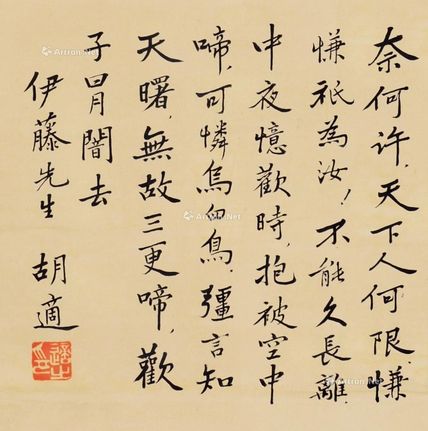 奈何许,天下人何限.慊
慊祇為汝!不能久長離.
中夜憶歡時,抱被空中
啼,可憐烏臼鳥.彊言知
天曙,無故三更啼,歡
子冐闇去
伊藤先生 胡適
Artron.Net
Artron.Net
Artron.Net
Artron.Net
Artron.Net